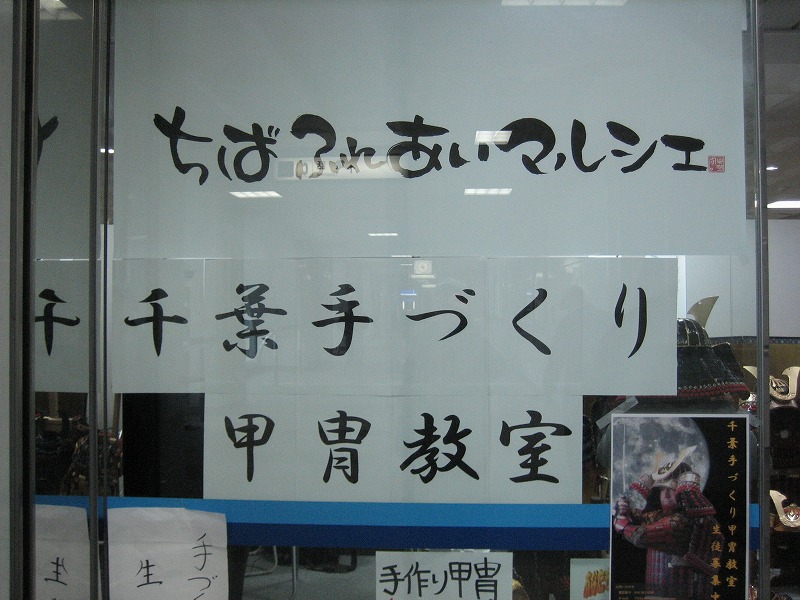 ちばふれあいマルシェ
千葉手づくり
甲冑教室
千葉手づくり甲冑教室
生徒募集中
手づく
生
手作り甲冑